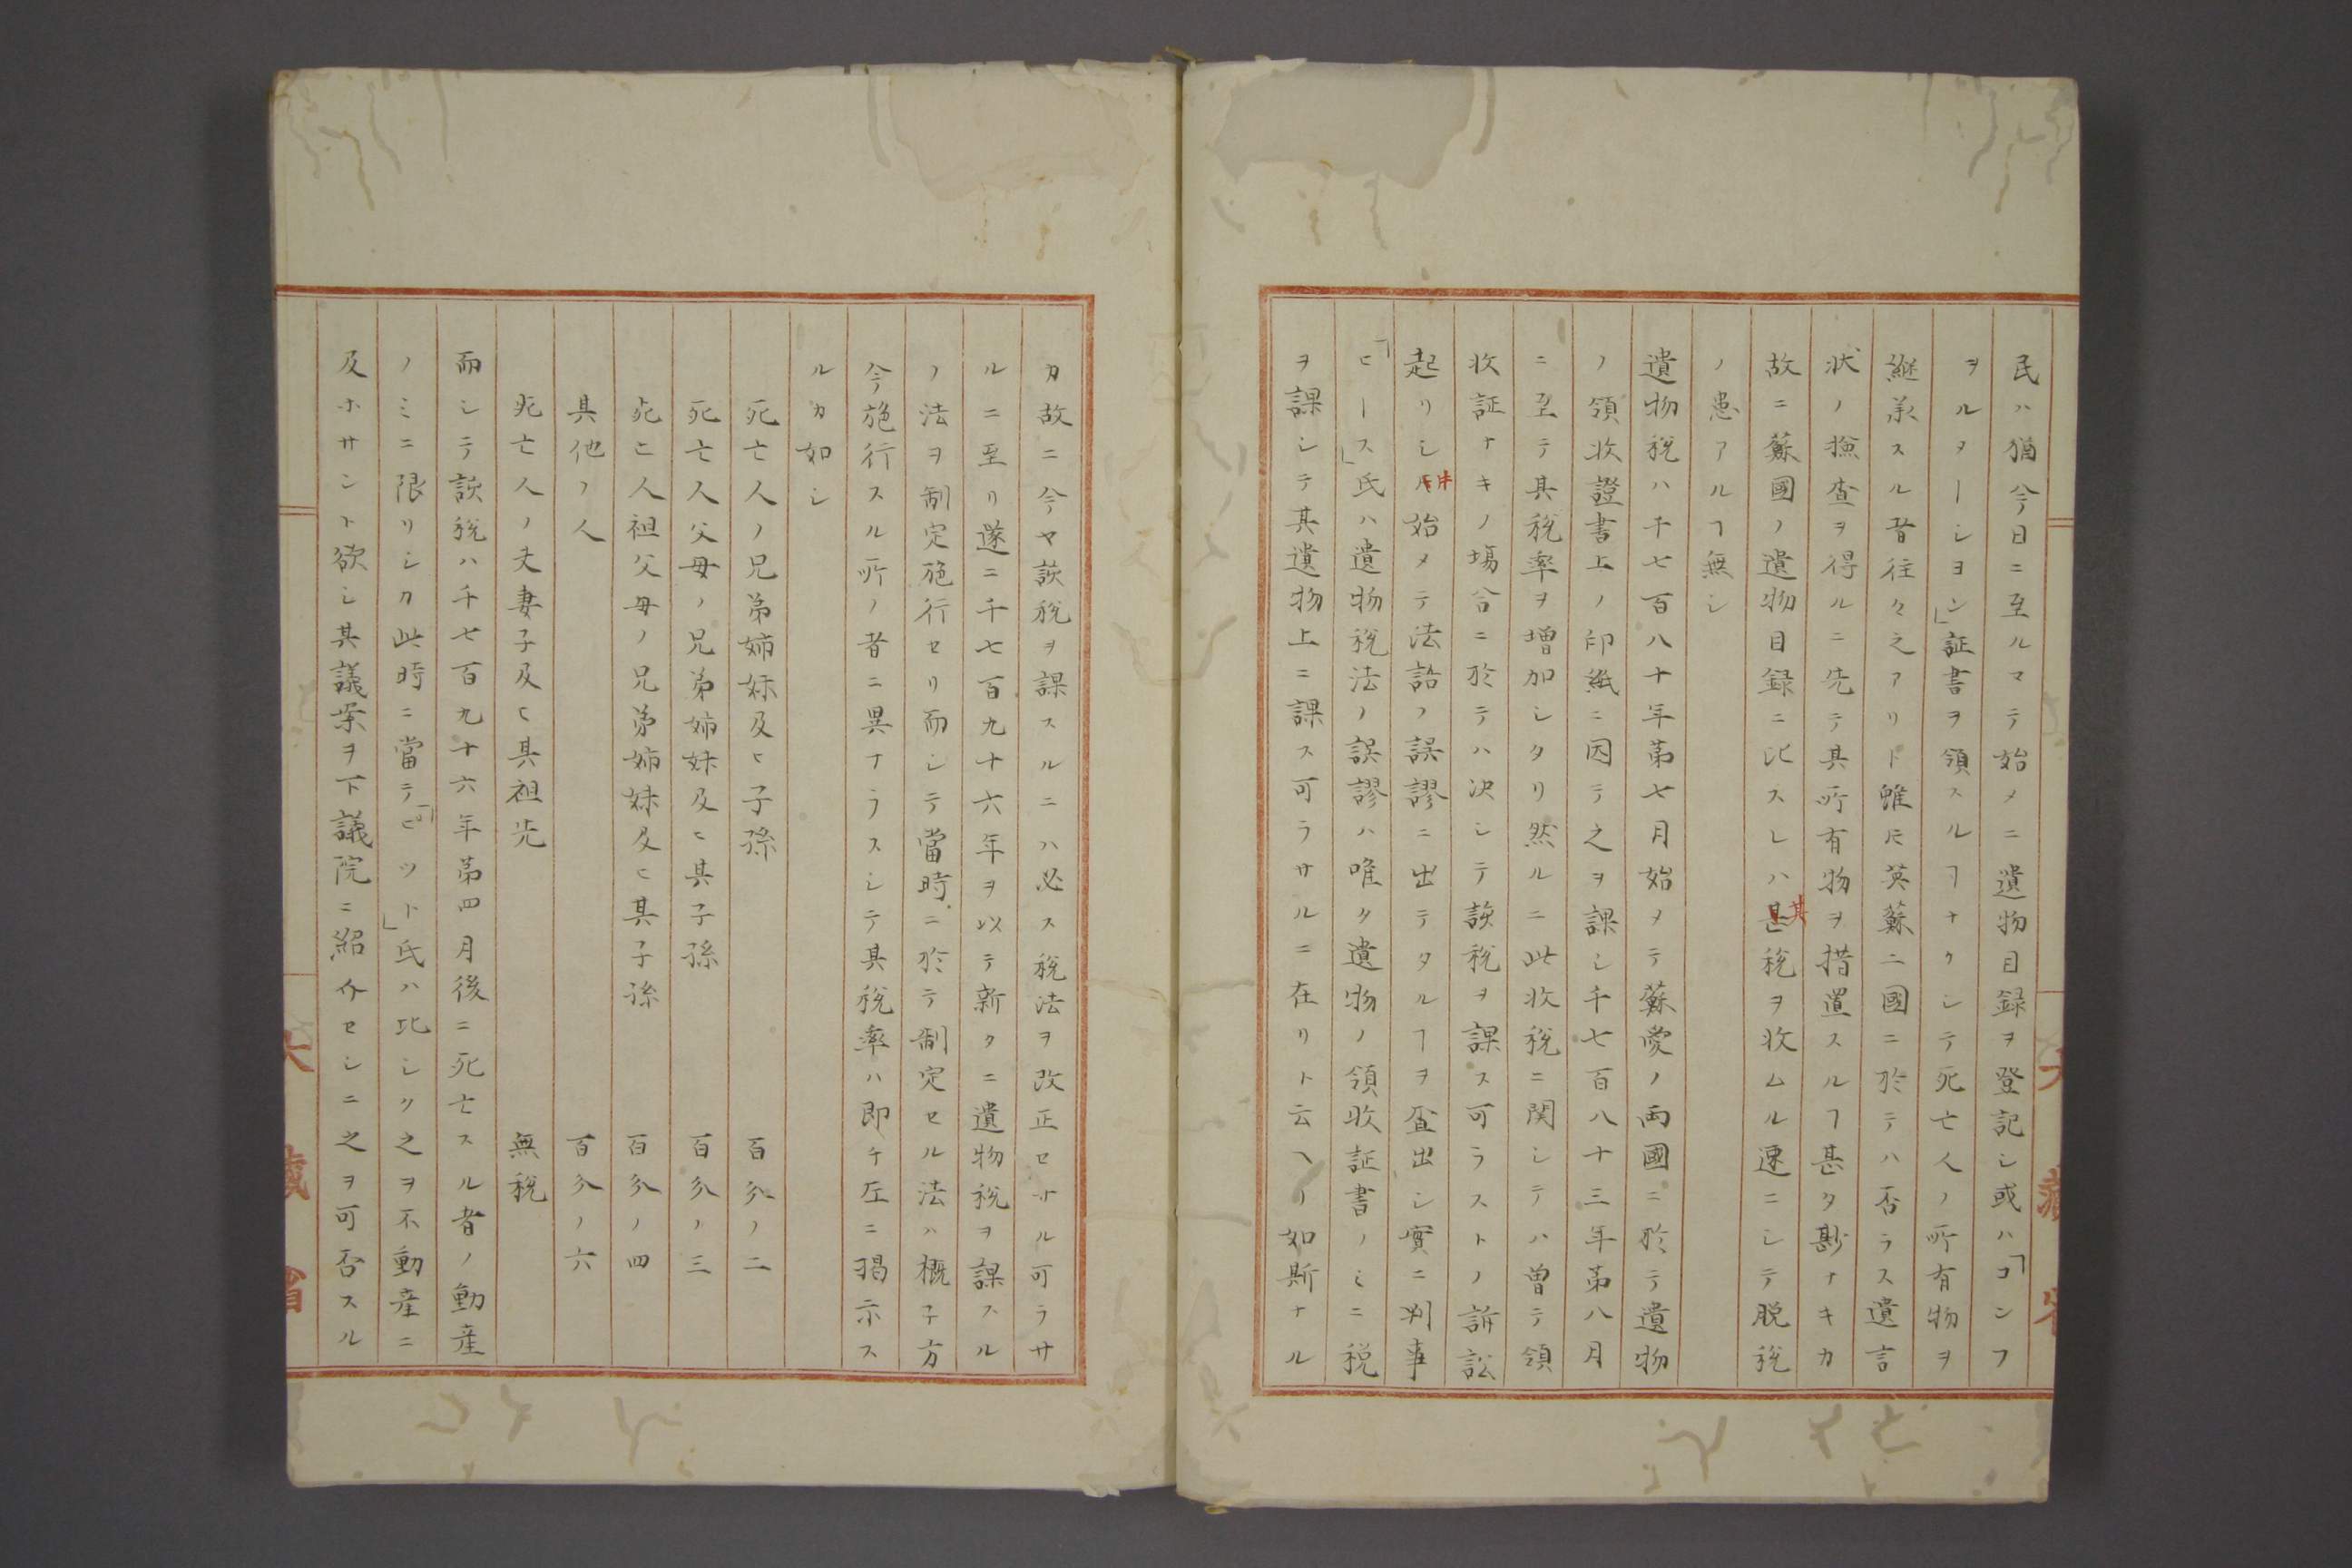 民ハ猶今日ニ至ルマテ始メニ遺物目録ヲ登記シ或ハ「コンフ
ヲルターシヨン」証書ヲ領スルヿナクシテ死亡人ノ所有物ヲ
継承スル者往々之アリト雖𪜈英蘇二國ニ於テハ否ラス遺言
状ノ撿査ヲ得ルニ先テ其所有物ヲ措置スルヿ甚タ尠ナキカ
故ニ蘇國ノ遺物目録ニ比スレハ甚其税ヲ收ムル速ニシテ脱税
ノ患アルヿ無シ
遺物税ハ千七百八十年第七月始メテ蘇愛ノ両國ニ於テ遺物
ノ領收證書上ノ印紙ニ因テ之ヲ課シ千七百八十三年第八月
ニ至テ其税率ヲ増加シタリ然ルニ此收税ニ関シテハ曽テ領
收証ナキノ塲合ニ於テハ决シテ該税ヲ課ス可ラストノ訴訟
起リシ𪜈始メテ法語ノ誤謬ニ出テタルヿヲ査出シ實ニ判事
「ピース」氏ハ遺物税法ノ誤謬ハ唯タ遺物ノ領收証書ノミニ税
ヲ課シテ其遺物上ニ課ス可ラサルニ在リト云ヘリ如斯ナル
カ故ニ今ヤ該税ヲ課スルニハ必ス税法ヲ改正セサル可ラサ
ルニ至リ遂ニ千七百九十六年ヲ以テ新タニ遺物税ヲ課スル
ノ法ヲ制定施行セリ而シテ當時ニ於テ制定セル法ハ概子方
今施行スル所ノ者ニ異ナラスシテ其税率ハ即チ左ニ掲示ス
ルカ如シ
死亡人ノ兄弟姉妹及ヒ子孫 百分ノ二
死亡人父母ノ兄弟姉妹及ヒ其子孫 百分ノ三
死亡人祖父母ノ兄弟姉妹及ヒ其子孫 百分ノ四
其他ノ人 百分ノ六
死亡人ノ夫妻子及ヒ其祖先 無税
而シテ該税ハ千七百九十六年第四月後ニ死亡スル者ノ動産
ノミニ限リシカ此時ニ當テ「ピット」氏ハ比シク之ヲ不動産ニ
及ホサント欲シ其議案ヲ下議院ニ紹介セシニ之ヲ可否スル
大藏省